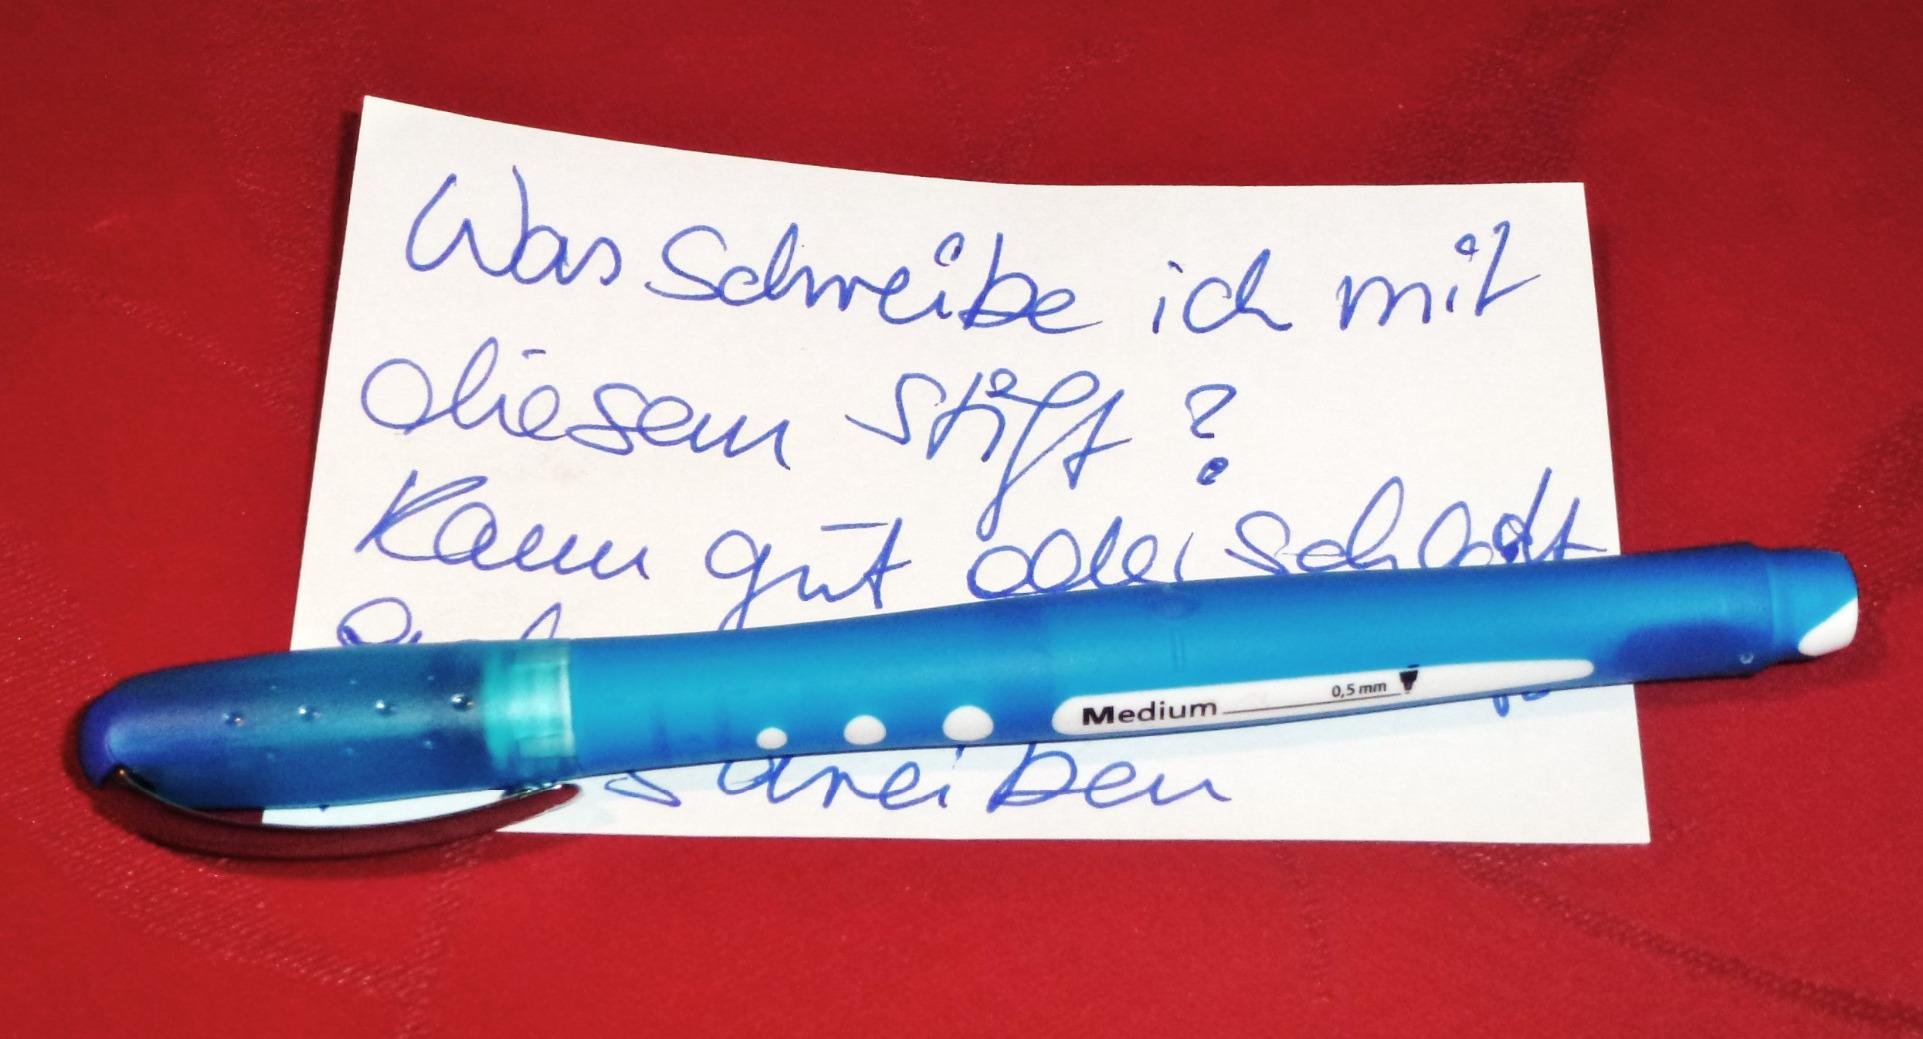 Was Schreibe ich mit
diesem Stift?
Kann gut oder schlecht
Medium 0,5 mm
schreiben